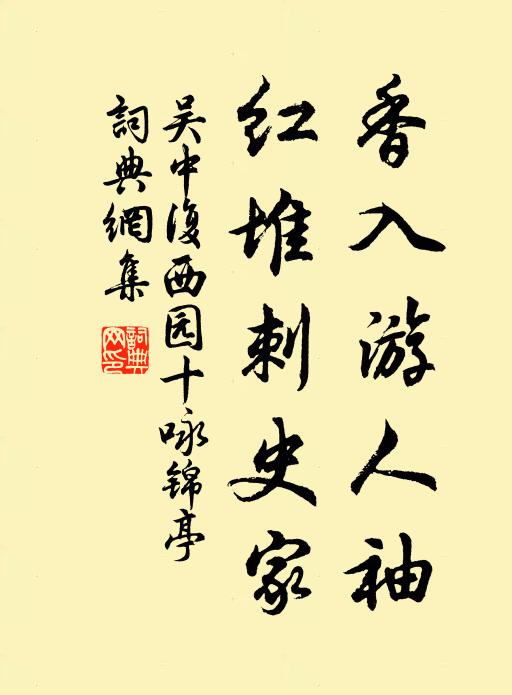 香入游人袖
红堆刺史家
吴中復西园十咏锦亭
詞典網集
詞典网印